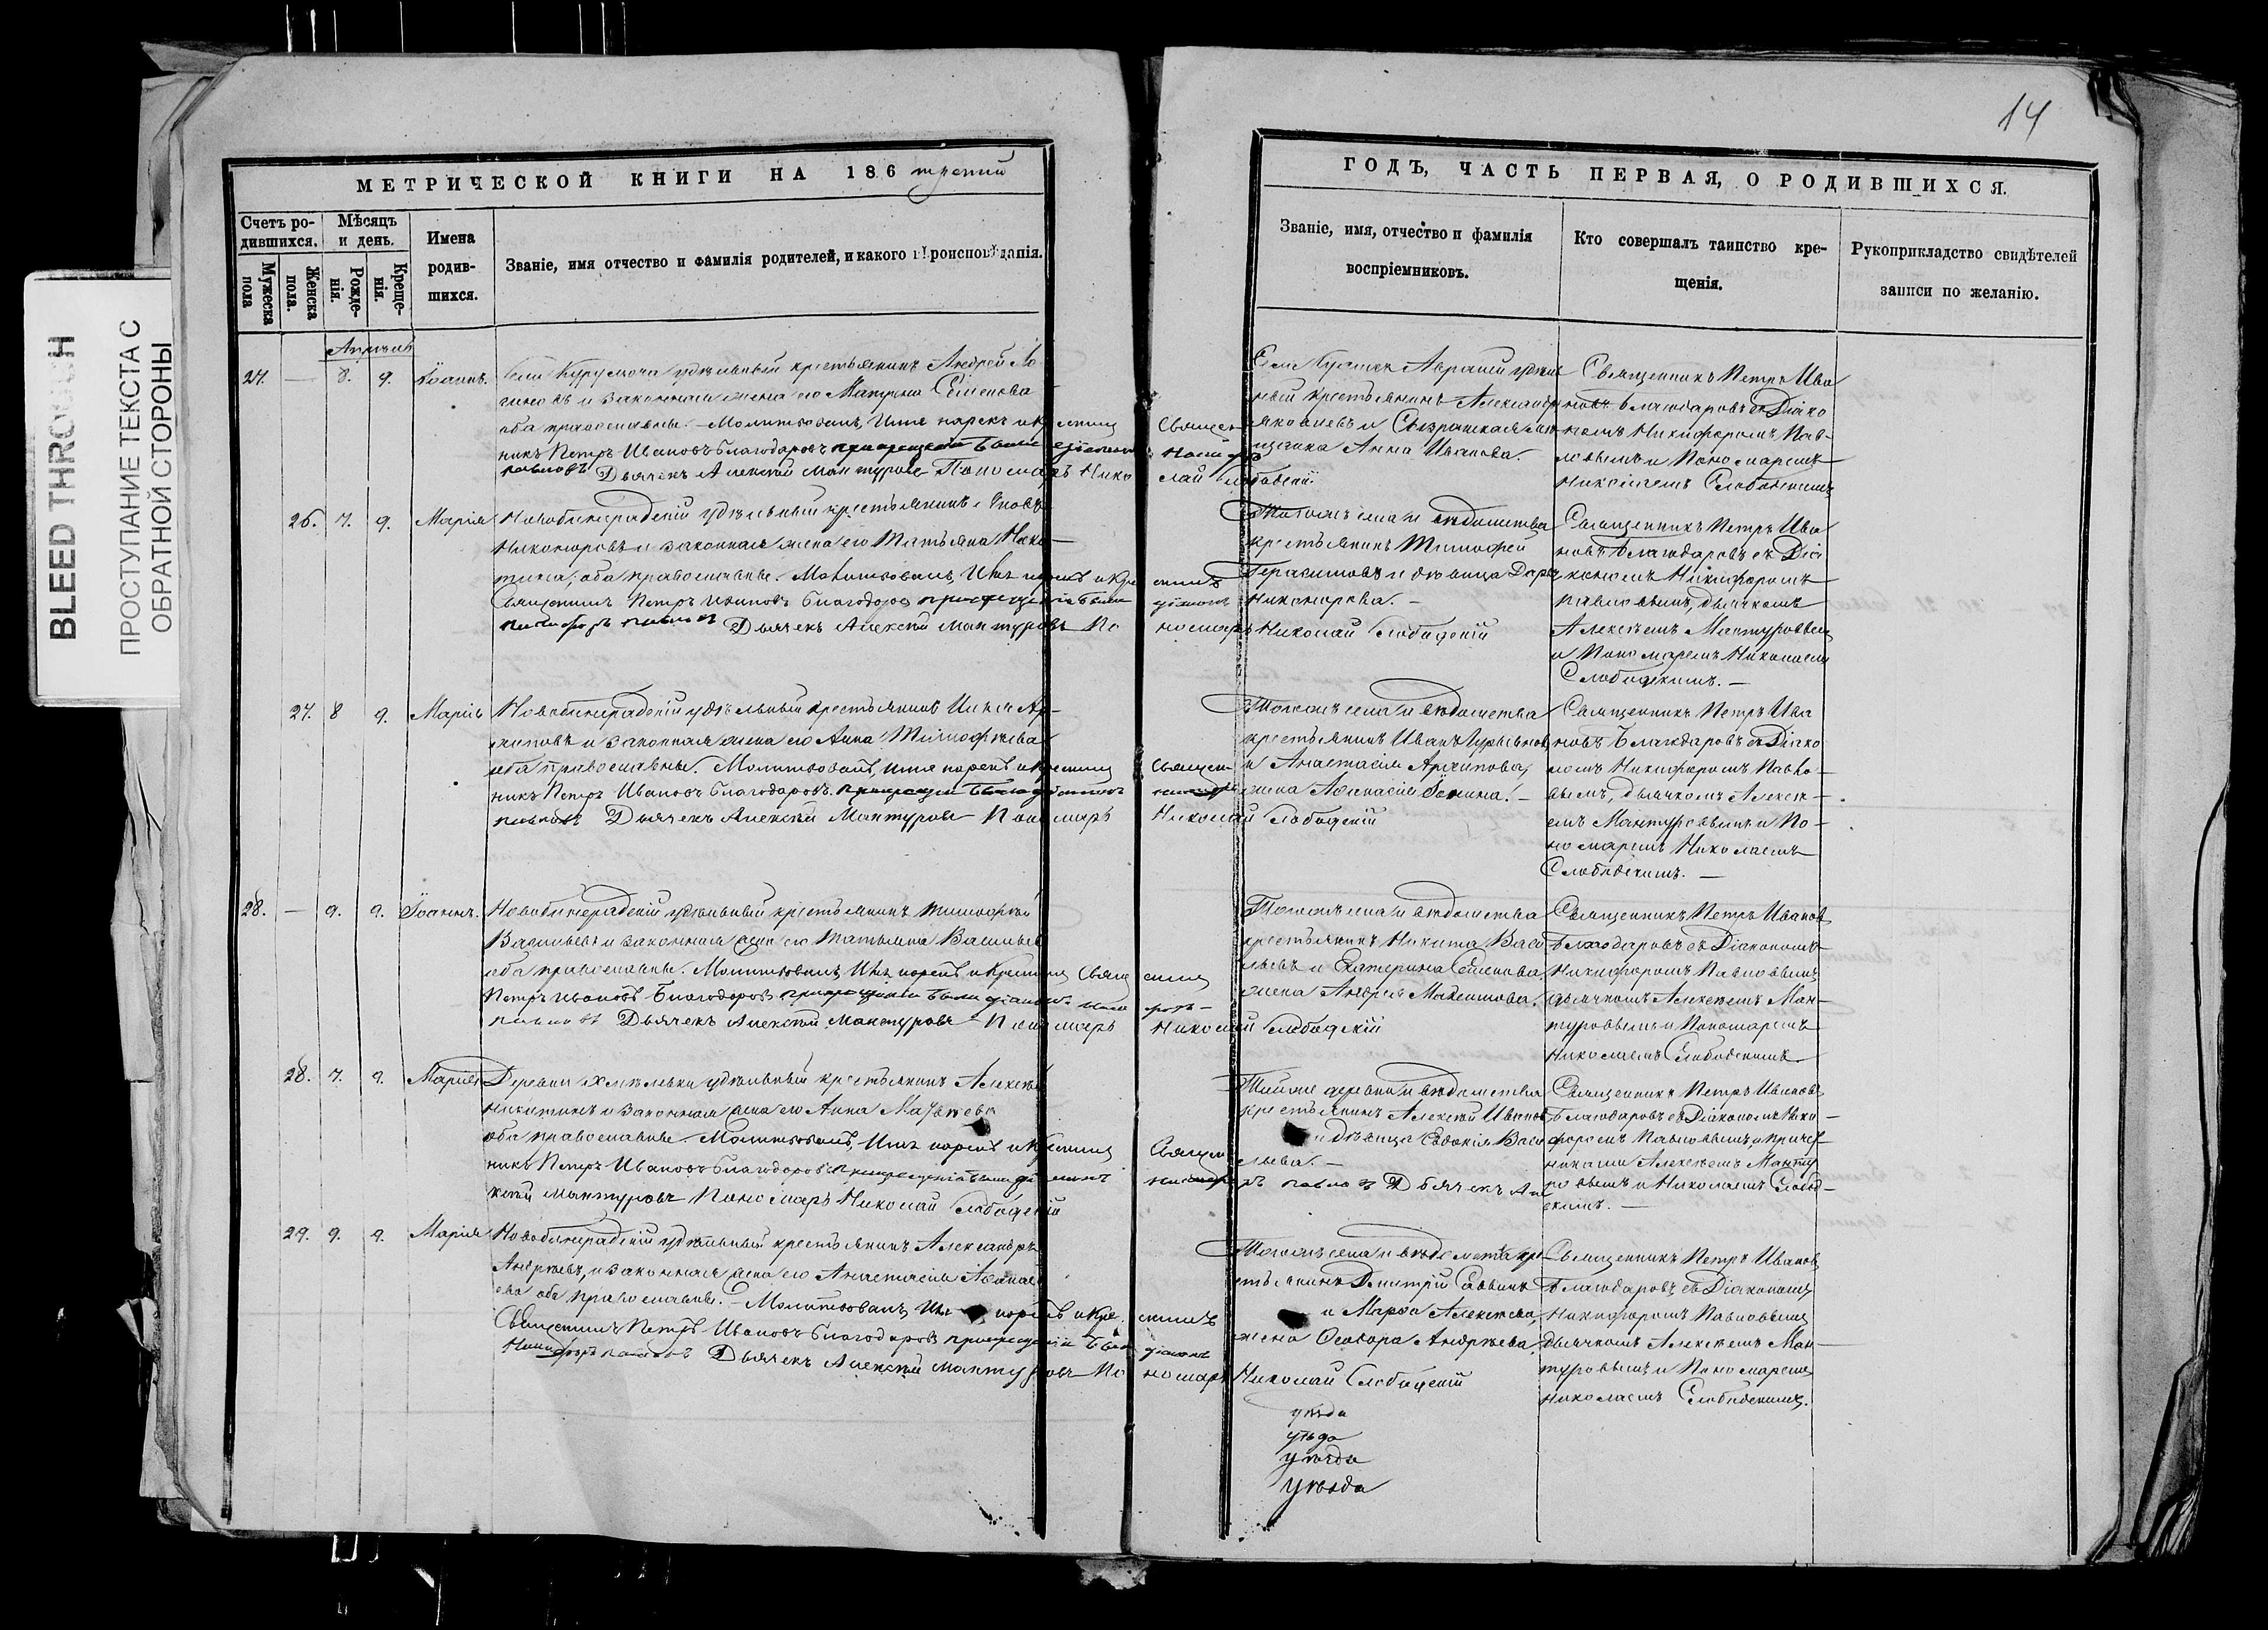 BLEED THROUGH
ПРОСТУПАНИЕ ТЕКСТА С
ОБРАТНОЙ СТОРОНЫ
14
МЕТРИЧЕСКОЙ КНИГИ НА 186 третий
Счетъ ро-
дившихся.
Мужеска
пола
Женска
пола.
Мѣсяцъ
и день.
Рожде-
нія.
Креще-
нія.
Имена
родив-
шихся.
Званіе, имя отчество и фамилія родителей, и какого вѣроисповѣданія.
ГОДЪ, ЧАСТЬ ПЕРВАЯ, О РОДИВШИХСЯ.
Званіе, имя, отчество и фамилія
воспріемниковъ.
Кто совершалъ таинство кре-
щенія.
Рукоприкладство свидѣтелей
записи по желанію.
Апрѣль
27. — 8. 9. Іоаннъ.
удѣльный крестьянинъ Андрей
и законная жена его Семенова
оба православны. Молитвовалъ, имя нарекъ и крестилъ Священ-
никъ Петръ Ивановъ Благодаровъ при крещеніи были діаконъ
Павловъ Дьячекъ Алексѣй Мантуровъ Пономарь Николай Слободскій
крестьянинъ Александръ
Яковлевъ и Сызранская
Анна Иванова.
Священникъ Петръ Ива
новъ Благодаровъ съ Діако
номъ Никифоромъ Пав-
ловымъ и Пономаремъ
Николаемъ Слободскимъ
26. 7. 9. Марія
удѣльный крестьянинъ
Никоноровъ и законная жена его Татьяна
оба православны. Молитвовалъ, имя нарекъ и крестилъ
Священникъ Петръ Ивановъ Благодаровъ при крещеніи были діаконъ
Никифоръ Павловъ Дьячекъ Алексѣй Мантуровъ Пономарь Николай Слободскій
Тогожъ села и вѣдомства
крестьянинъ Тимофей
Герасимовъ и дѣвица Дарья
Никонорова. —
Священникъ Петръ Ива
новъ Благодаровъ съ Діа
кономъ Никифоромъ
Павловымъ, дьячкомъ
Алексѣемъ Мантуровымъ
и Пономаремъ Николаемъ
Слободскимъ. —
27. 8 9. Марія
удѣльный крестьянинъ
и законная жена его Анна Тимофѣева
оба православны. Молитвовалъ, имя нарекъ и крестилъ Священ-
никъ Петръ Ивановъ Благодаровъ при крещеніи были діаконъ
Павловъ Дьячекъ Алексѣй Мантуровъ Пономарь Николай Слободскій
Тогожъ села и вѣдомства
крестьянинъ Иванъ
и Анастасія Архипова,
жена Афанасія
Священникъ Петръ Ива
новъ Благодаровъ съ Діако
номъ Никифоромъ Павло-
вымъ, дьячкомъ Алексѣ-
емъ Мантуровымъ и По-
номаремъ Николаемъ
Слободскимъ. —
28. — 9. 9. Іоаннъ.
удѣльный крестьянинъ Тимофей
Васильевъ и законная жена его Татьяна Васильева
оба православны. Молитвовалъ, имя нарекъ и крестилъ Священникъ
Петръ Ивановъ Благодаровъ при крещеніи были діаконъ Никифоръ
Павловъ Дьячекъ Алексѣй Мантуровъ Пономарь Николай Слободскій
Тогожъ села и вѣдомства
крестьянинъ Никита Васи
льевъ и Екатерина Семенова,
жена Андрея Максимова.
Священникъ Петръ Ивановъ
Благодаровъ съ Діакономъ
Никифоромъ Павловымъ
дьячкомъ Алексѣемъ Ман-
туровымъ и Пономаремъ
Николаемъ Слободскимъ
28. 7. 9. Марія
Деревни Хмѣлевки удѣльный крестьянинъ Алексѣй
Никитинъ и законная жена его Анна
оба православны. Молитвовалъ, имя нарекъ и крестилъ Священ
никъ Петръ Ивановъ Благодаровъ при крещеніи были діаконъ
Никифоръ Павловъ Дьячекъ Але
ксѣй Мантуровъ Пономарь Николай Слободскій
Тойже деревни и вѣдомства
крестьянинъ Алексѣй Ивановъ
и дѣвица Евдокія Васи
льева. —
Священникъ Петръ Ивановъ
Благодаровъ съ Діакономъ Ники-
форомъ Павловымъ и причет
никами Алексѣемъ Манту
ровымъ и Николаемъ Слобод-
скимъ. —
29. 9. 9. Марія
удѣльный крестьянинъ Александръ
Андрѣевъ, и законная жена его Анастасія Афанась
ева оба православны. — Молитвовалъ, имя нарекъ и крестилъ
Священникъ Петръ Ивановъ Благодаровъ при крещеніи были діаконъ
Никифоръ Павловъ Дьячекъ Алексѣй Мантуровъ Пономарь Николай Слободскій
Тогожъ села и вѣдомства кре-
стьянинъ Дмитрій Саввинъ
и Марѳа Алексѣева,
жена Ѳеодора Андрѣева.
Священникъ Петръ Ивановъ
Благодаровъ съ Діакономъ
Никифоромъ Павловымъ
дьячкомъ Алексѣемъ Ман-
туровымъ и Пономаремъ
Николаемъ Слободскимъ.
уѣзда
уѣзда
уѣзда
уѣзда